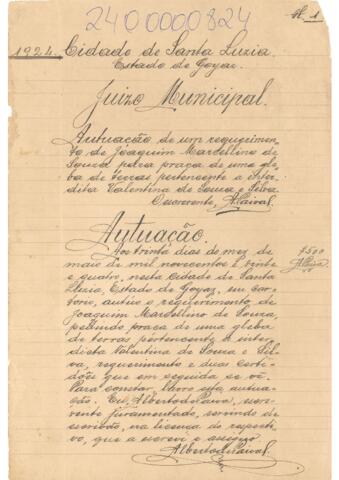 2400000824
Fl. 1
1924. Cidade de Santa Luzia
Estado de Goyaz.
Juizo Municipal.
Autuação de um requerimen-
to de Joaquim Marcellino de
Souza para praça de uma gle-
ba de terras pertencente a inter-
dita Valentina de Souza e Silva.
Escrevente, APaiva.
Autuação.
Aos trinta dias do mez de
maio de mil novecentos e vinte
e quatro, nesta Cidade de Santa
Luzia, Estado de Goyaz, em car-
torio, autúo o requerimento de
Joaquim Marcellino de Souza,
pedindo praça de uma gleba
de terras pertencente à inter-
dicta Valentina de Souza e Sil-
va, requerimento e duas certi-
dões que em seguida se vê.
Para constar, lavro esta autua-
ção. Eu, Alberto de Paiva, escre-
vente juramentado, servindo de
escrivão, na licença do respecti-
vo, que a escrevi e assigno
Alberto de Paiva.
1500
APaiva